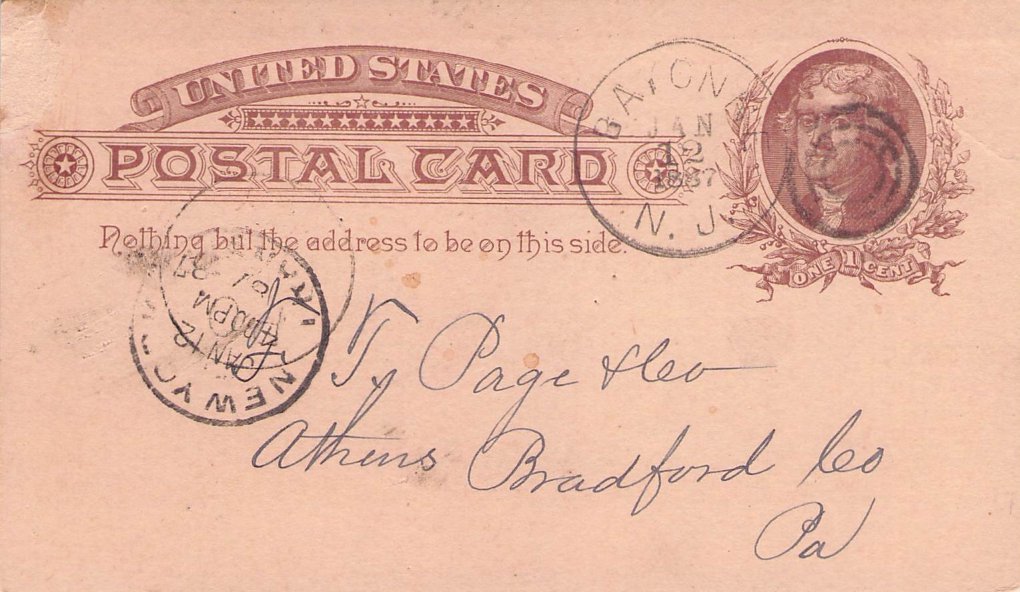 UNITED STATES
POSTAL CARD
Nothing but the address to be on this side.
ONE 1 CENT
BAYONNE
JAN
12
1887
N. J.
NEW YO
JAN 12
430PM
87
Page & Co
Athens Bradford Co
Pa